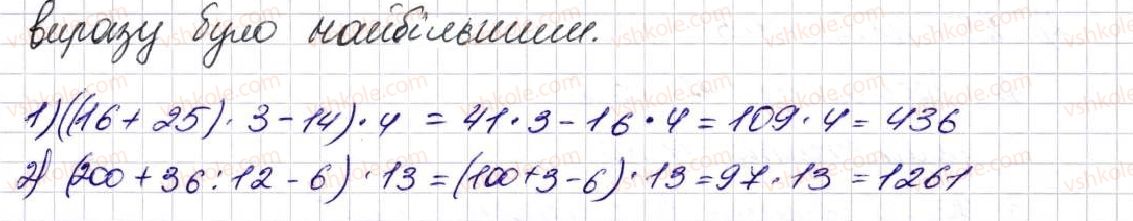 виразу було найбільшим.
1) ((16 + 25) · 3 - 14) · 4 = 41 · 3 - 16 · 4 = 109 · 4 = 436
2) (200 + 36 : 12 - 6) · 13 = (100 + 3 - 6) · 13 = 97 · 13 = 1261